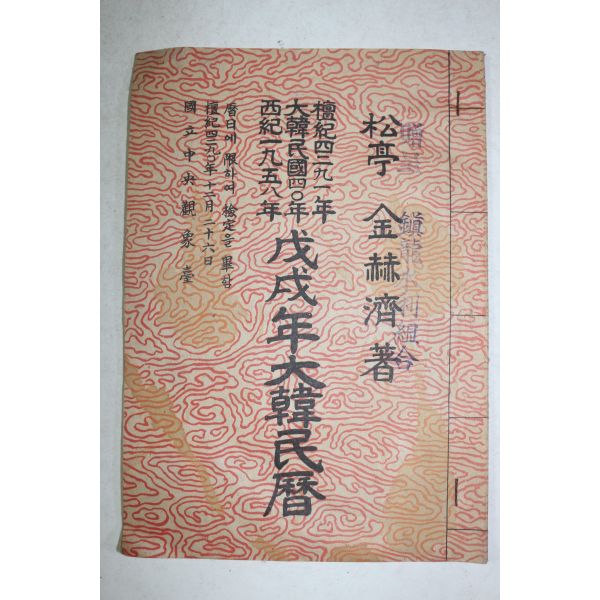 松亭 金赫濟著
檀紀四二九一年
大韓民國四〇年
西紀一九五八年
戊戌年大韓民曆
曆日에 限하여 檢定을 畢함
檀紀四二九〇年十二月二十六日
國立中央觀象臺